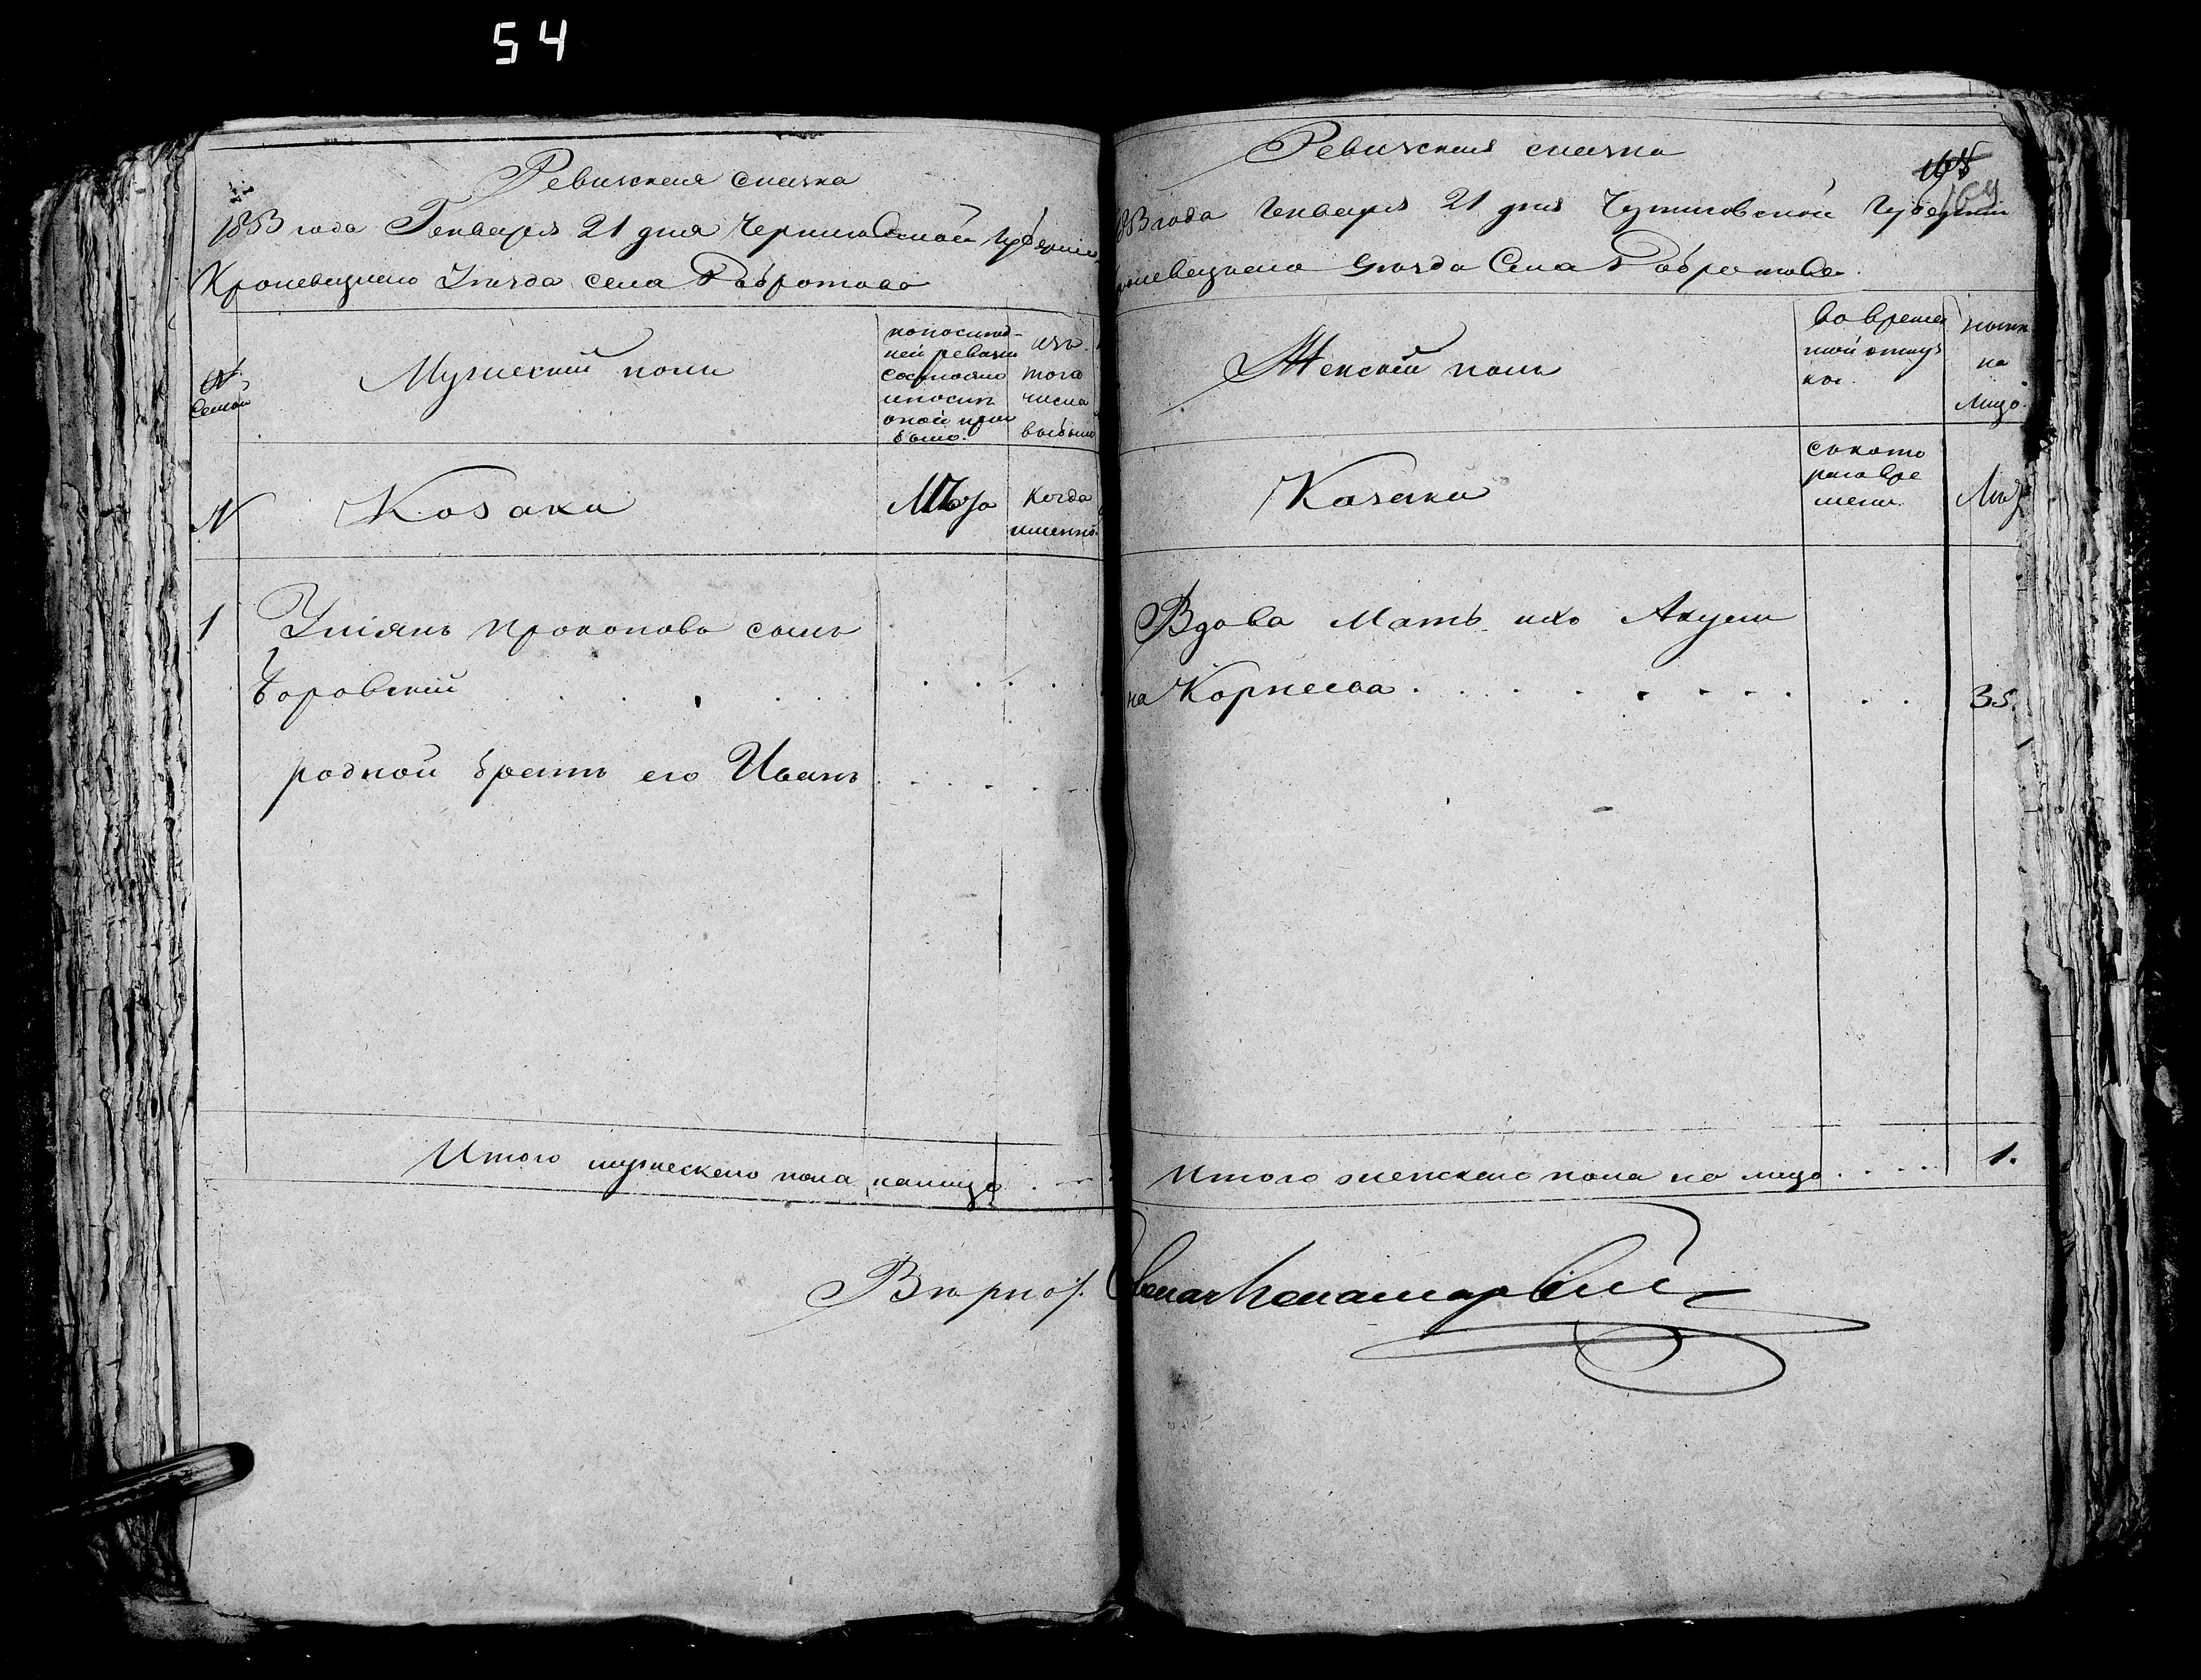 54
Ревизская сказка
1853 года Генваря 21 дня Черниговской Губерніи
Кролевецкаго Уезда села Добротова
№ семьи
Мужескій полъ
по послед-
ней ревизіи
состояло
и после
оной при
было.
изъ
того
числа
выбыло
№
Козаки
Лѣта
когда
именно.
1
Уліянъ Прокоповъ сынъ
Боровскій . . . . . . . . .
родной братъ его Иванъ . . . . . .
Итого мужескаго пола налицо . . .
Вѣрно:
Ревизская сказка
165
169
1853 года Генваря 21 дня Черниговской Губерніи
Кролевецкаго Уезда Села Добротова
Женскій полъ
во времен
ной отлуч
ке.
ныне
на
Лицо.
Козаки
съ кото
раго вре
мени.
Лѣта
Вдова Мать ихъ Акули
на Корнеева . . . . . . . . . . 35.
Итого женскаго пола на лицо . . . . 1.